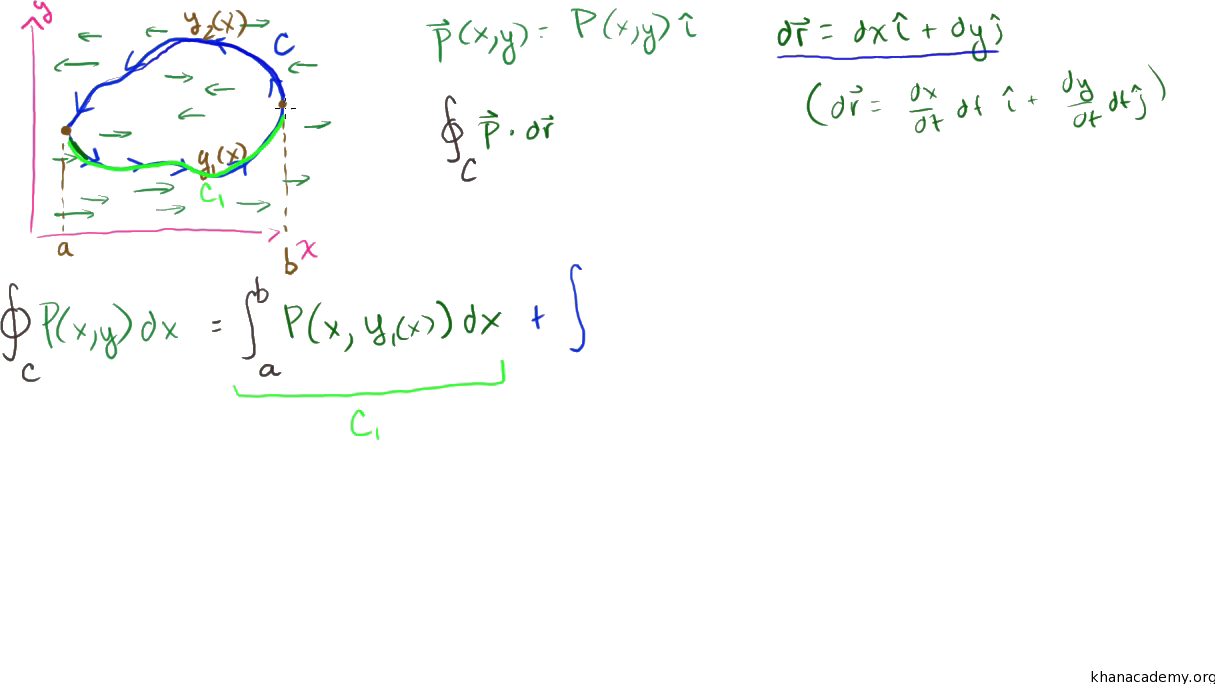 y
y₂(x)
C
y₁(x)
C₁
a
b
x
P⃗(x,y) = P(x,y) î
∮_C P⃗ · dr⃗
dr⃗ = dx î + dy ĵ
(dr⃗ = dx/dt dt î + dy/dt dt ĵ)
∮_C P(x,y) dx = ∫_a^b P(x, y₁(x)) dx + ∫
C₁
khanacademy.org